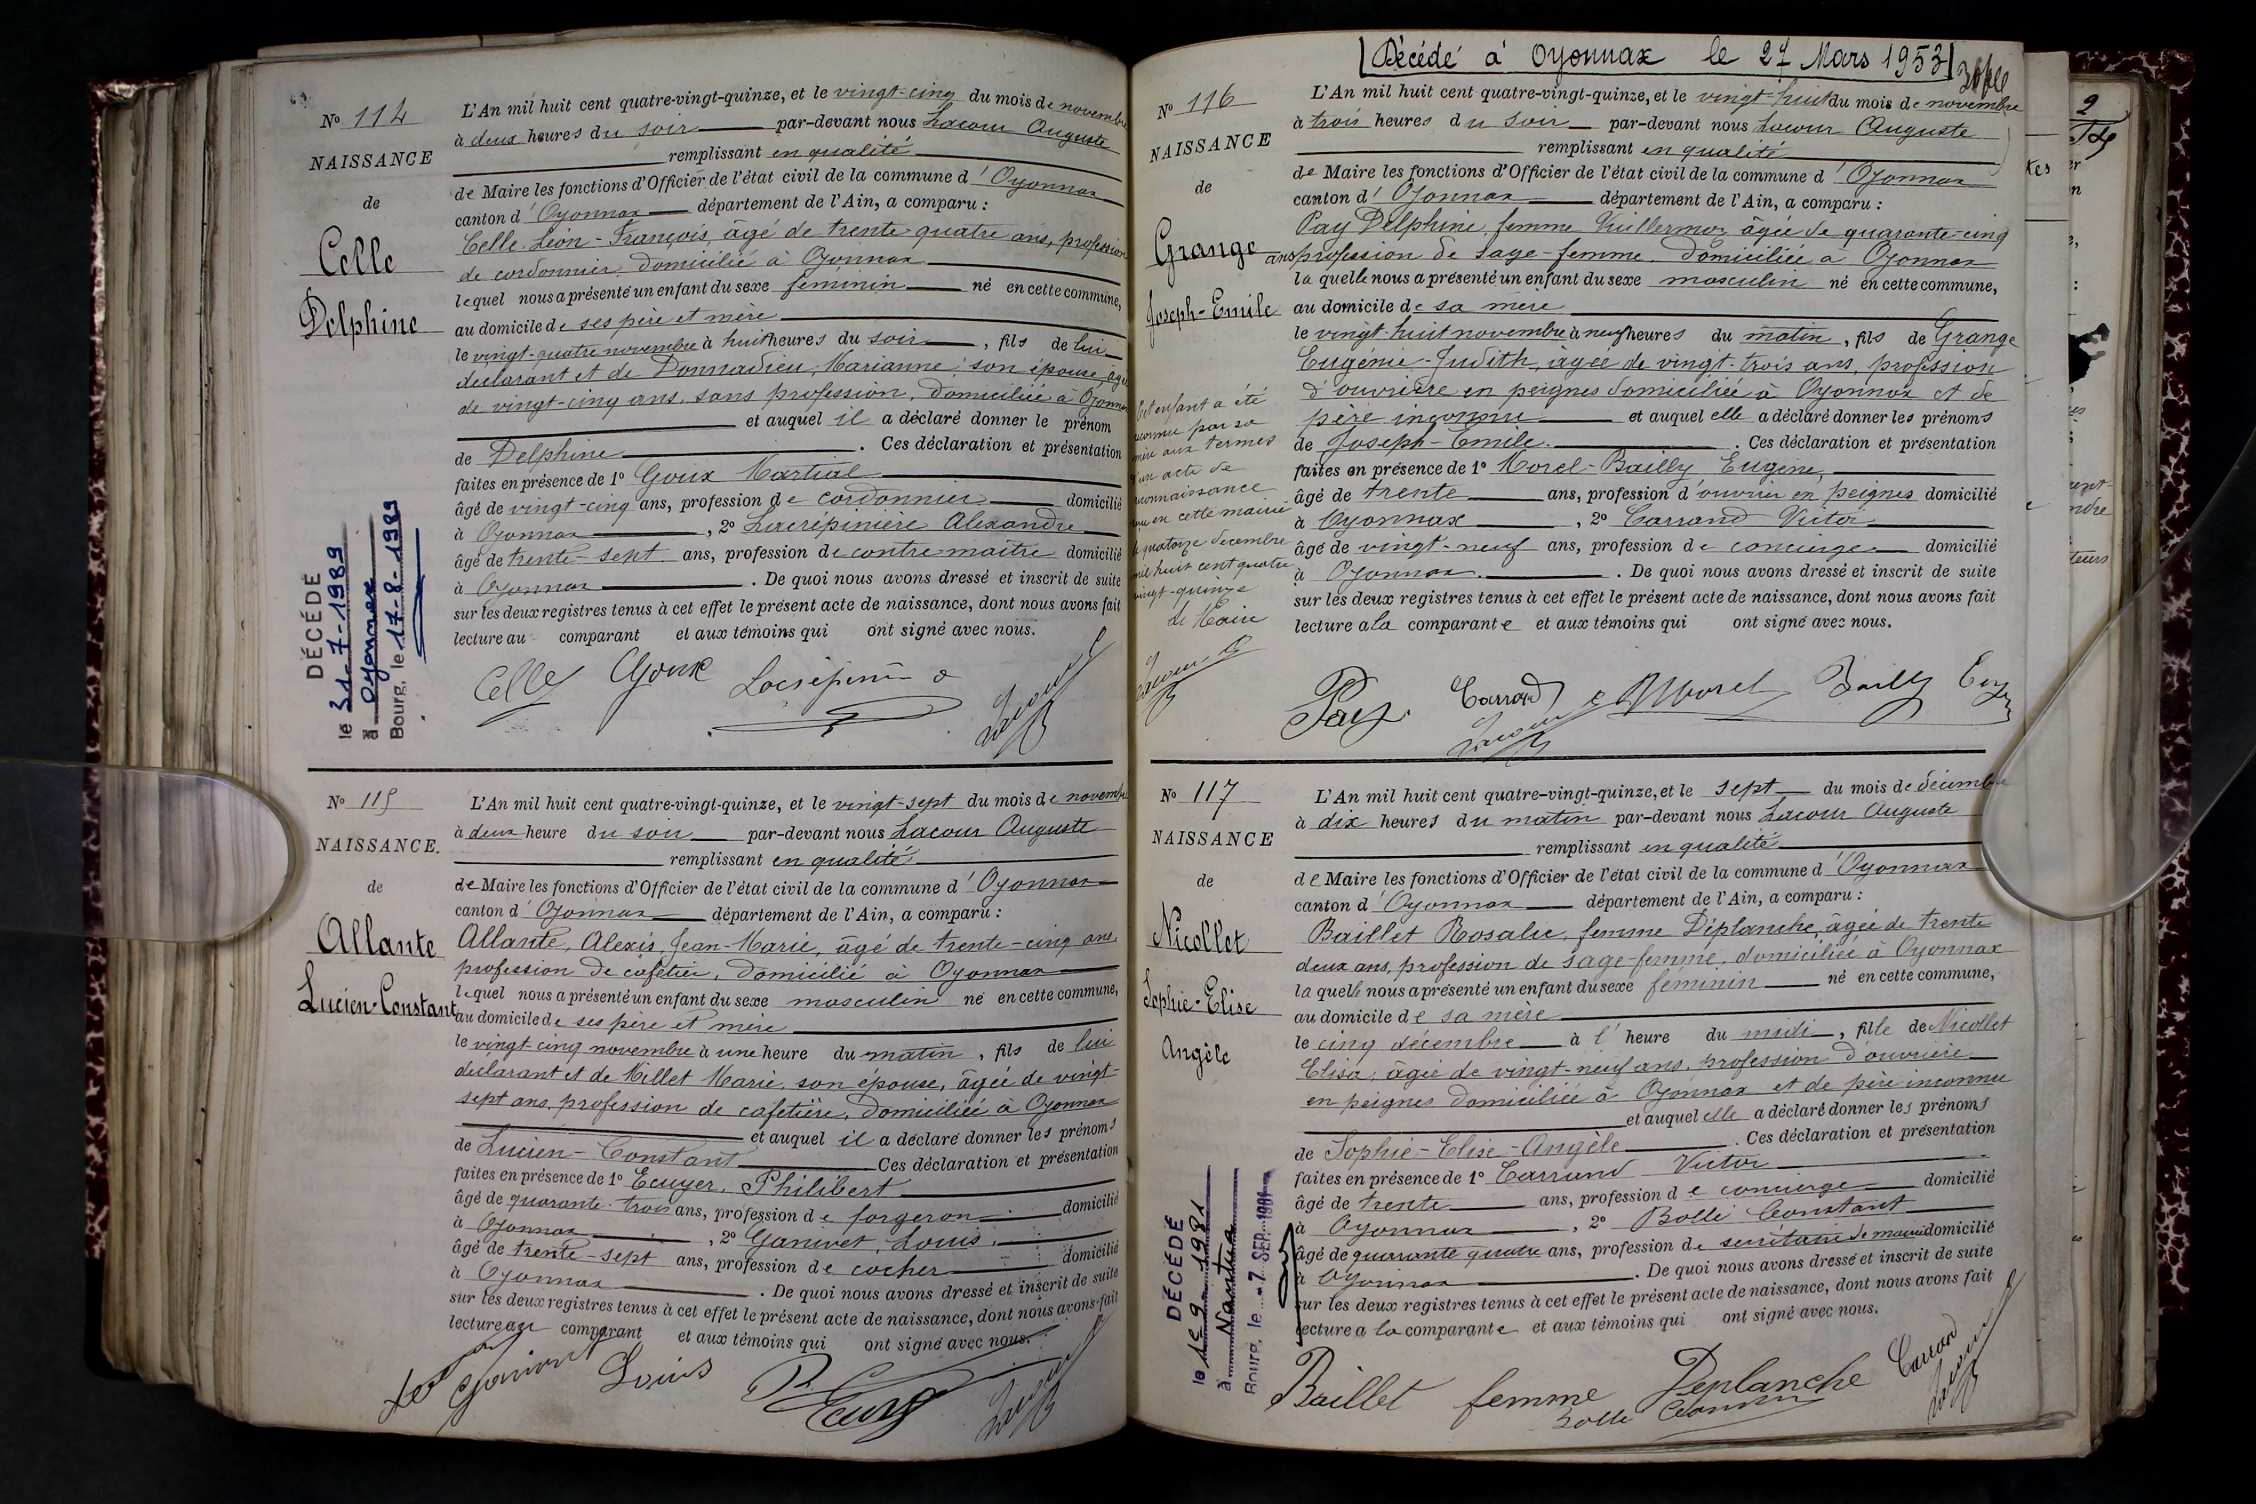 No 114
NAISSANCE
de
Celle
Delphine
L'An mil huit cent quatre-vingt-quinze, et le vingt-cinq du mois de novembre
à deux heures du soir par-devant nous Lacour Auguste
remplissant en qualité
de Maire les fonctions d'Officier de l'état civil de la commune d'Oyonnax
canton d'Oyonnax département de l'Ain, a comparu :
Celle Léon-François, âgé de trente-quatre ans, profession
de cordonnier, domicilié à Oyonnax
lequel nous a présenté un enfant du sexe féminin né en cette commune,
au domicile de ses père et mère
le vingt-quatre novembre à huit heures du soir, fils de lui
déclarant et de Donnadieu, Marianne, son épouse, âgée
de vingt-cinq ans, sans profession, domiciliée à Oyonnax
et auquel il a déclaré donner le prénom
de Delphine. Ces déclaration et présentation
faites en présence de 1º Goux Martial
âgé de vingt-cinq ans, profession de cordonnier domicilié
à Oyonnax, 2º Lacrépinière Alexandre
âgé de trente-sept ans, profession de contre-maître domicilié
à Oyonnax. De quoi nous avons dressé et inscrit de suite
sur les deux registres tenus à cet effet le présent acte de naissance, dont nous avons fait
lecture au comparant et aux témoins qui ont signé avec nous.
Celle Goux
DÉCÉDÉ
le 31-7-1989
à Oyonnax
Bourg, le 17-8-1989
No 115
NAISSANCE.
de
Allante
Lucien-Constant
L'An mil huit cent quatre-vingt-quinze, et le vingt-sept du mois de novembre
à deux heure du soir par-devant nous Lacour Auguste
remplissant en qualité
de Maire les fonctions d'Officier de l'état civil de la commune d'Oyonnax
canton d'Oyonnax département de l'Ain, a comparu :
Allante, Alexis, Jean-Marie, âgé de trente-cinq ans
profession de cafetier, domicilié à Oyonnax
lequel nous a présenté un enfant du sexe masculin né en cette commune,
au domicile de ses père et mère
le vingt cinq novembre à une heure du matin, fils de lui
déclarant et de Millet Marie, son épouse, âgée de vingt-
sept ans, profession de cafetière, domiciliée à Oyonnax
et auquel il a déclaré donner les prénoms
de Lucien-Constant Ces déclaration et présentation
faites en présence de 1º Ecuyer, Philibert
âgé de quarante-trois ans, profession de forgeron domicilié
à Oyonnax, 2º Ganivet, Louis,
âgé de trente-sept ans, profession de cocher domicilié
à Oyonnax. De quoi nous avons dressé et inscrit de suite
sur les deux registres tenus à cet effet le présent acte de naissance, dont nous avons fait
lecture au comparant et aux témoins qui ont signé avec nous.
Louis
Décédé à Oyonnax le 27 Mars 1953
No 116
NAISSANCE
de
Grange
Joseph-Emile
L'An mil huit cent quatre-vingt-quinze, et le vingt-huit du mois de novembre
à trois heures du soir par-devant nous Lacour Auguste
remplissant en qualité
de Maire les fonctions d'Officier de l'état civil de la commune d'Oyonnax
canton d'Oyonnax département de l'Ain, a comparu :
Pay Delphine, femme Vuillermoz âgée de quarante-cinq
ans profession de sage-femme. domiciliée à Oyonnax
laquelle nous a présenté un enfant du sexe masculin né en cette commune,
au domicile de sa mère
le vingt-huit novembre à neuf heures du matin, fils de Grange
Eugénie-Judith, âgée de vingt-trois ans, profession
d'ouvrière en peignes domiciliée à Oyonnax et de
père inconnu et auquel elle a déclaré donner les prénoms
de Joseph-Emile. Ces déclaration et présentation
faites en présence de 1º Morel-Bailly Eugène,
âgé de trente ans, profession d'ouvrier en peignes domicilié
à Oyonnax, 2º Carrand Victor
âgé de vingt-neuf ans, profession de concierge domicilié
à Oyonnax. De quoi nous avons dressé et inscrit de suite
sur les deux registres tenus à cet effet le présent acte de naissance, dont nous avons fait
lecture a la comparante et aux témoins qui ont signé avec nous.
Pay Carrand Morel Bailly
Cet enfant a été
reconnu par sa
mère aux termes
d'un acte de
reconnaissance
en cette mairie
le quatorze décembre
mil huit cent quatre
vingt-quinze
le Maire
No 117
NAISSANCE
de
Nicollet
Sophie-Elise
Angèle
L'An mil huit cent quatre-vingt-quinze, et le sept du mois de décembre
à dix heures du matin par-devant nous Lacour Auguste
remplissant en qualité
de Maire les fonctions d'Officier de l'état civil de la commune d'Oyonnax
canton d'Oyonnax département de l'Ain, a comparu :
Baillet Rosalie, femme Déplanche, âgée de trente
deux ans, profession de sage-femme, domiciliée à Oyonnax
laquelle nous a présenté un enfant du sexe féminin né en cette commune,
au domicile de sa mère
le cinq décembre à l'heure du midi, fille de Nicollet
Elisa, âgée de vingt-neuf ans, profession d'ouvrière
en peignes domiciliée à Oyonnax et de père inconnu
et auquel elle a déclaré donner les prénoms
de Sophie-Elise-Angèle. Ces déclaration et présentation
faites en présence de 1º Carrand Victor
âgé de trente ans, profession de concierge domicilié
à Oyonnax, 2º Bollé Constant
âgé de quarante quatre ans, profession de secrétaire de mairie domicilié
à Oyonnax. De quoi nous avons dressé et inscrit de suite
sur les deux registres tenus à cet effet le présent acte de naissance, dont nous avons fait
lecture a la comparante et aux témoins qui ont signé avec nous.
Baillet femme Deplanche Carrand
DÉCÉDÉ
le 1e 9-1981
à Nantua
Bourg, le -7. SEP. 1981